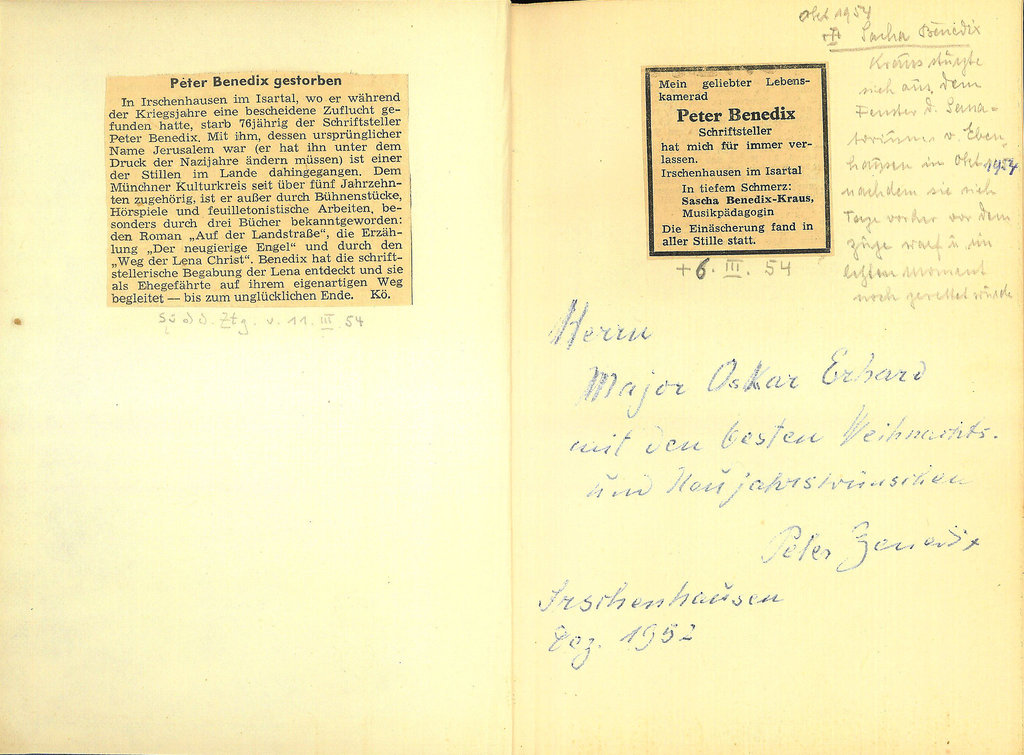 Peter Benedix gestorben
In Irschenhausen im Isartal, wo er während
der Kriegsjahre eine bescheidene Zuflucht ge-
funden hatte, starb 76jährig der Schriftsteller
Peter Benedix. Mit ihm, dessen ursprünglicher
Name Jerusalem war (er hat ihn unter dem
Druck der Nazijahre ändern müssen) ist einer
der Stillen im Lande dahingegangen. Dem
Münchner Kulturkreis seit über fünf Jahrzehn-
ten zugehörig, ist er außer durch Bühnenstücke,
Hörspiele und feuilletonistische Arbeiten, be-
sonders durch drei Bücher bekanntgeworden:
den Roman „Auf der Landstraße", die Erzäh-
lung „Der neugierige Engel" und durch den
„Weg der Lena Christ". Benedix hat die schrift-
stellerische Begabung der Lena entdeckt und sie
als Ehegefährte auf ihrem eigenartigen Weg
begleitet — bis zum unglücklichen Ende. Kö.
Südd. Ztg. v. 11. III. 54
Mein geliebter Lebens-
kamerad
Peter Benedix
Schriftsteller
hat mich für immer ver-
lassen.
Irschenhausen im Isartal
In tiefem Schmerz:
Sascha Benedix-Kraus,
Musikpädagogin
Die Einäscherung fand in
aller Stille statt.
+ 6. III. 54
Okt 1954
Sacha Benedix
Kraus stürzte
sich aus dem
Fenster d. Sana-
toriums v. Eben-
hausen im Okt 1954
nachdem sie sich
Tage vorher vor dem
Zuge warf u. im
letzten Moment
noch gerettet wurde
Herrn
Major Oskar Erhard
mit den besten Weihnachts-
und Neujahrswünschen
Peter Benedix
Irschenhausen
Dez. 1952